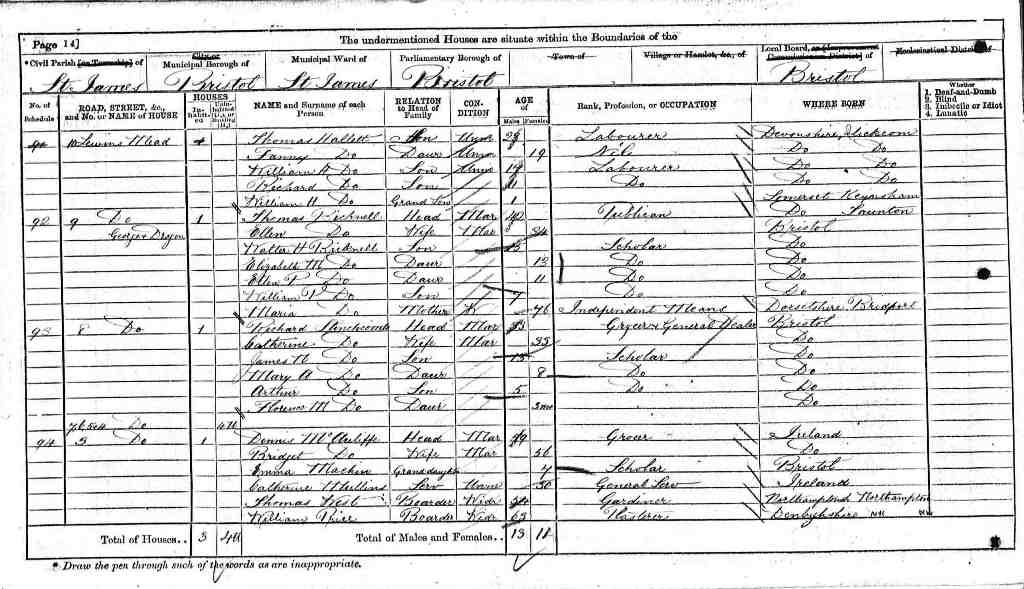 Page 14]
The undermentioned Houses are situate within the Boundaries of the
* Civil Parish [or Township] of
City or Municipal Borough of
Municipal Ward of
Parliamentary Borough of
Town of
Village or Hamlet, &c., of
Local Board, or [Improvement Commissioners District] of
Ecclesiastical District of
St. James Bristol St. James Bristol Bristol
No. of Schedule
ROAD, STREET, &c., and No. or NAME of HOUSE
HOUSES
Inhabited
Uninhabited (U.), or Building (B.)
NAME and Surname of each Person
RELATION to Head of Family
CONDITION
AGE of
Males Females
Rank, Profession, or OCCUPATION
WHERE BORN
Whether
1. Deaf-and-Dumb
2. Blind
3. Imbecile or Idiot
4. Lunatic
10 Lewins Mead Thomas Hallett Son Unm Labourer Devonshire,
Fanny Do Daur Unm 19 Do Do
William H Do Son Unm Labourer Do Do
Richard Do Son 11 Do Do Do
William H. Do Grand Son 1 Somerset Keynsham
92 9 Do 1 Thomas Head Mar Publican Do Taunton
George & Dragon Ellen Do Wife Mar 34 Bristol
Walter H Son Scholar Do
Elizabeth M Do Daur 13 Do Do
Ellen P Do Daur 11 Do Do
William P Do Son 7 Do Do
Maria Do Mother W 76 Independent Means Dorsetshire Bridport
93 8 Do 1 Richard Head Mar 33 Grocer & General Dealer Bristol
Catherine Do Wife Mar 33 Do
James Do Son Scholar Do
Mary A Do Daur 8 Do Do
Arthur Do Son 5 Do Do
Florence M Do Daur 3mo Do
7, 6, 5 & 4 Do 4U
94 3 Do 1 Dennis McAuliffe Head Mar Grocer Ireland
Bridget Do Wife Mar Do
Emma Machin Granddaughter 4 Scholar Bristol
Catherine Mullins Serv 30 General Serv Ireland
Thomas West Boarder Widr Gardiner Northampton
William Boarder Widr 63 Denbighshire NK NK
Total of Houses.. 3 4U Total of Males and Females.. 13 11
* Draw the pen through such of the words as are inappropriate.